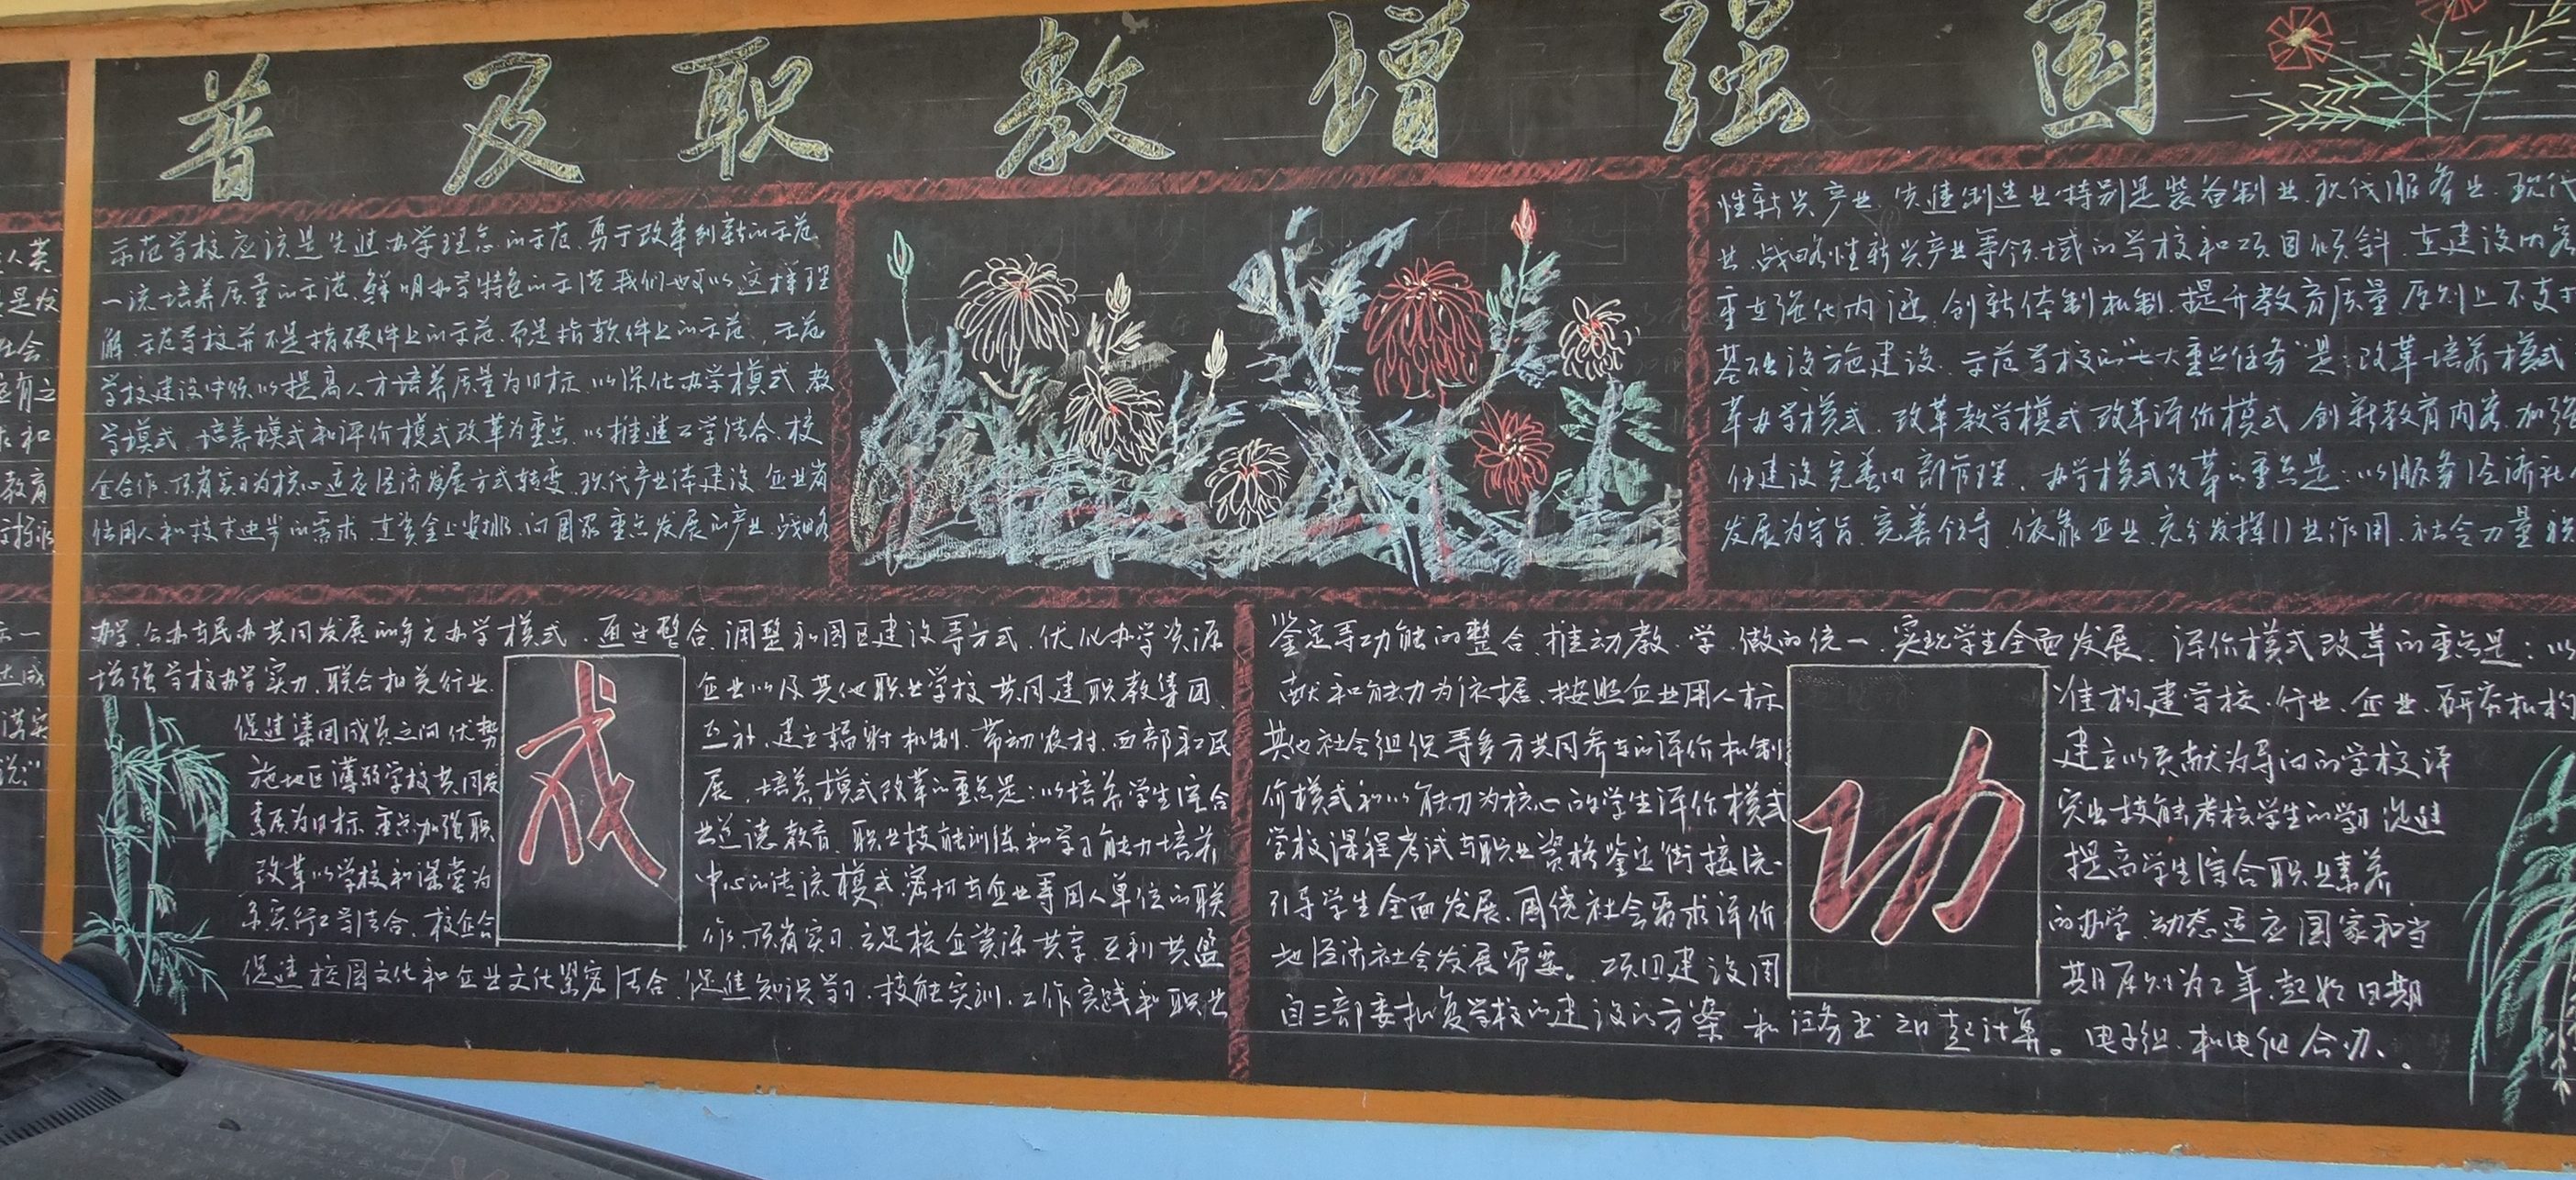 普及职教增强国
示范学校应该是先进办学理念的示范、勇于改革创新的示范
一流培养质量的示范、鲜明办学特色的示范我们也可以这样理
解、示范学校并不是指硬件上的示范、而是指软件上的示范、示范
学校建设中须以提高人才培养质量为目标、以深化办学模式、教
学模式、培养模式和评价模式改革为重点、以推进工学结合、校
企合作、顶岗实习为核心适应经济发展方式转变、现代产业体建设、企业岗
位用人和技术进步的需求、在资金上安排、向国家重点发展的产业、战略
性新兴产业、先进制造业特别是装备制业、现代服务业、现代
业、战略性新兴产业等领域的学校和项目倾斜、在建设内容
重在强化内涵、创新体制机制、提升教育质量、原则上不支
基础设施建设、示范学校的"七大重点任务"是:改革培养模式
革办学模式、改革教学模式、改革评价模式、创新教育内容、加强
伍建设完善内部管理、办学模式改革的重点是:以服务经济社
发展为宗旨、完善领导、依靠企业、充分发挥行业作用、社会力量积
办学、公办与民办共同发展的多元办学模式、通过整合、调整和园区建设等方式、优化办学资源
增强学校办学实力、联合相关行业、企业以及其他职业学校共同建职教集团、
促进集团成员之间优势互补、建立辐射机制、带动农村、西部和民
施地区薄弱学校共同发展、培养模式改革的重点是:以培养学生综合
素质为目标、重点加强职业道德教育、职业技能训练和学习能力培养
改革以学校和课堂为中心的传统模式密切与企业等用人单位的联
系实行工学结合、校企合作、顶岗实习、立足校企资源共享、互利共赢
促进校园文化和企业文化紧密结合、促进知识学习、技能实训、工作实践和职业
鉴定等功能的整合、推动教、学、做的统一、实现学生全面发展、评价模式改革的重点是:以
献和能力为依据、按照企业用人标准构建学校、行业、企业、研究机构
其他社会组织等多方共同参与的评价机制建立以贡献为导向的学校评
价模式和以能力为核心的学生评价模式突出技能考核学生的学习促进
学校课程考试与职业资格鉴定衔接统一提高学生综合职业素养
引导学生全面发展、围绕社会需求评价的办学、动态适应国家和当
地经济社会发展需要。项目建设周期原则为2年、起始日期
自三部委批复学校的建设的方案和任务书之日起计算。电子组、机电组合办、
成
功